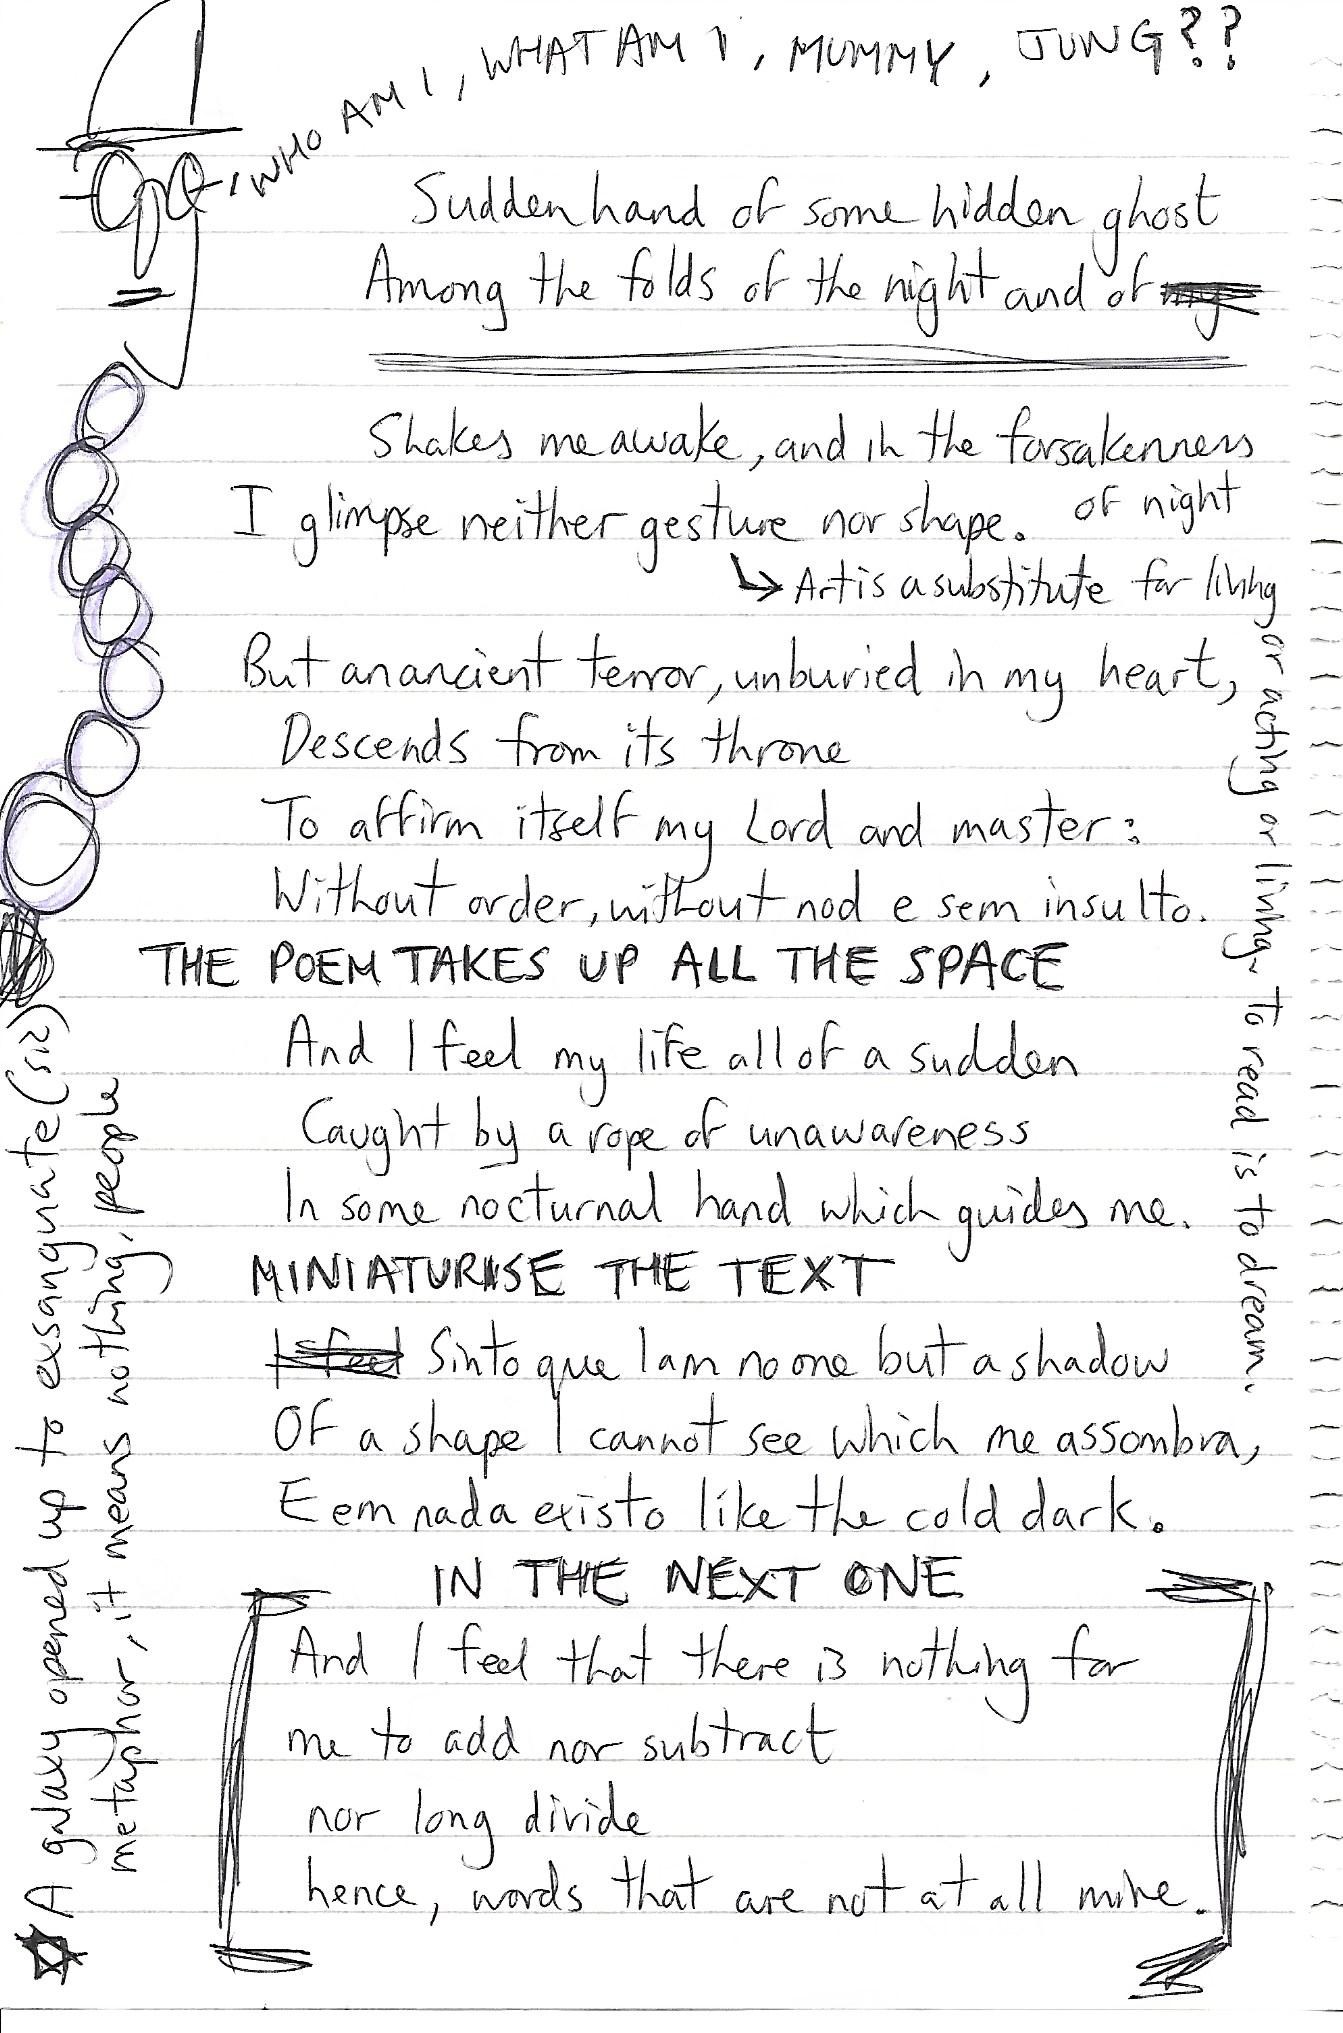 WHO AM I, WHAT AM I, MUMMY, JUNG??
Sudden hand of some hidden ghost
Among the folds of the night and of my
Shakes me awake, and in the forsakenness
of night
I glimpse neither gesture nor shape.
↳ Art is a substitute for living
or acting or living. To read is to dream.
But an ancient terror, unburied in my heart,
Descends from its throne
To affirm itself my Lord and master:
Without order, without nod e sem insulto.
THE POEM TAKES UP ALL THE SPACE
And I feel my life all of a sudden
Caught by a rope of unawareness
In some nocturnal hand which guides me.
MINIATURISE THE TEXT
I feel Sinto que I am no one but a shadow
Of a shape I cannot see which me assombra,
E em nada existo like the cold dark.
IN THE NEXT ONE
And I feel that there is nothing for
me to add nor subtract
nor long divide
hence, words that are not at all mine.
A galaxy opened up to exsanguate (sic)
metaphor, it means nothing, people